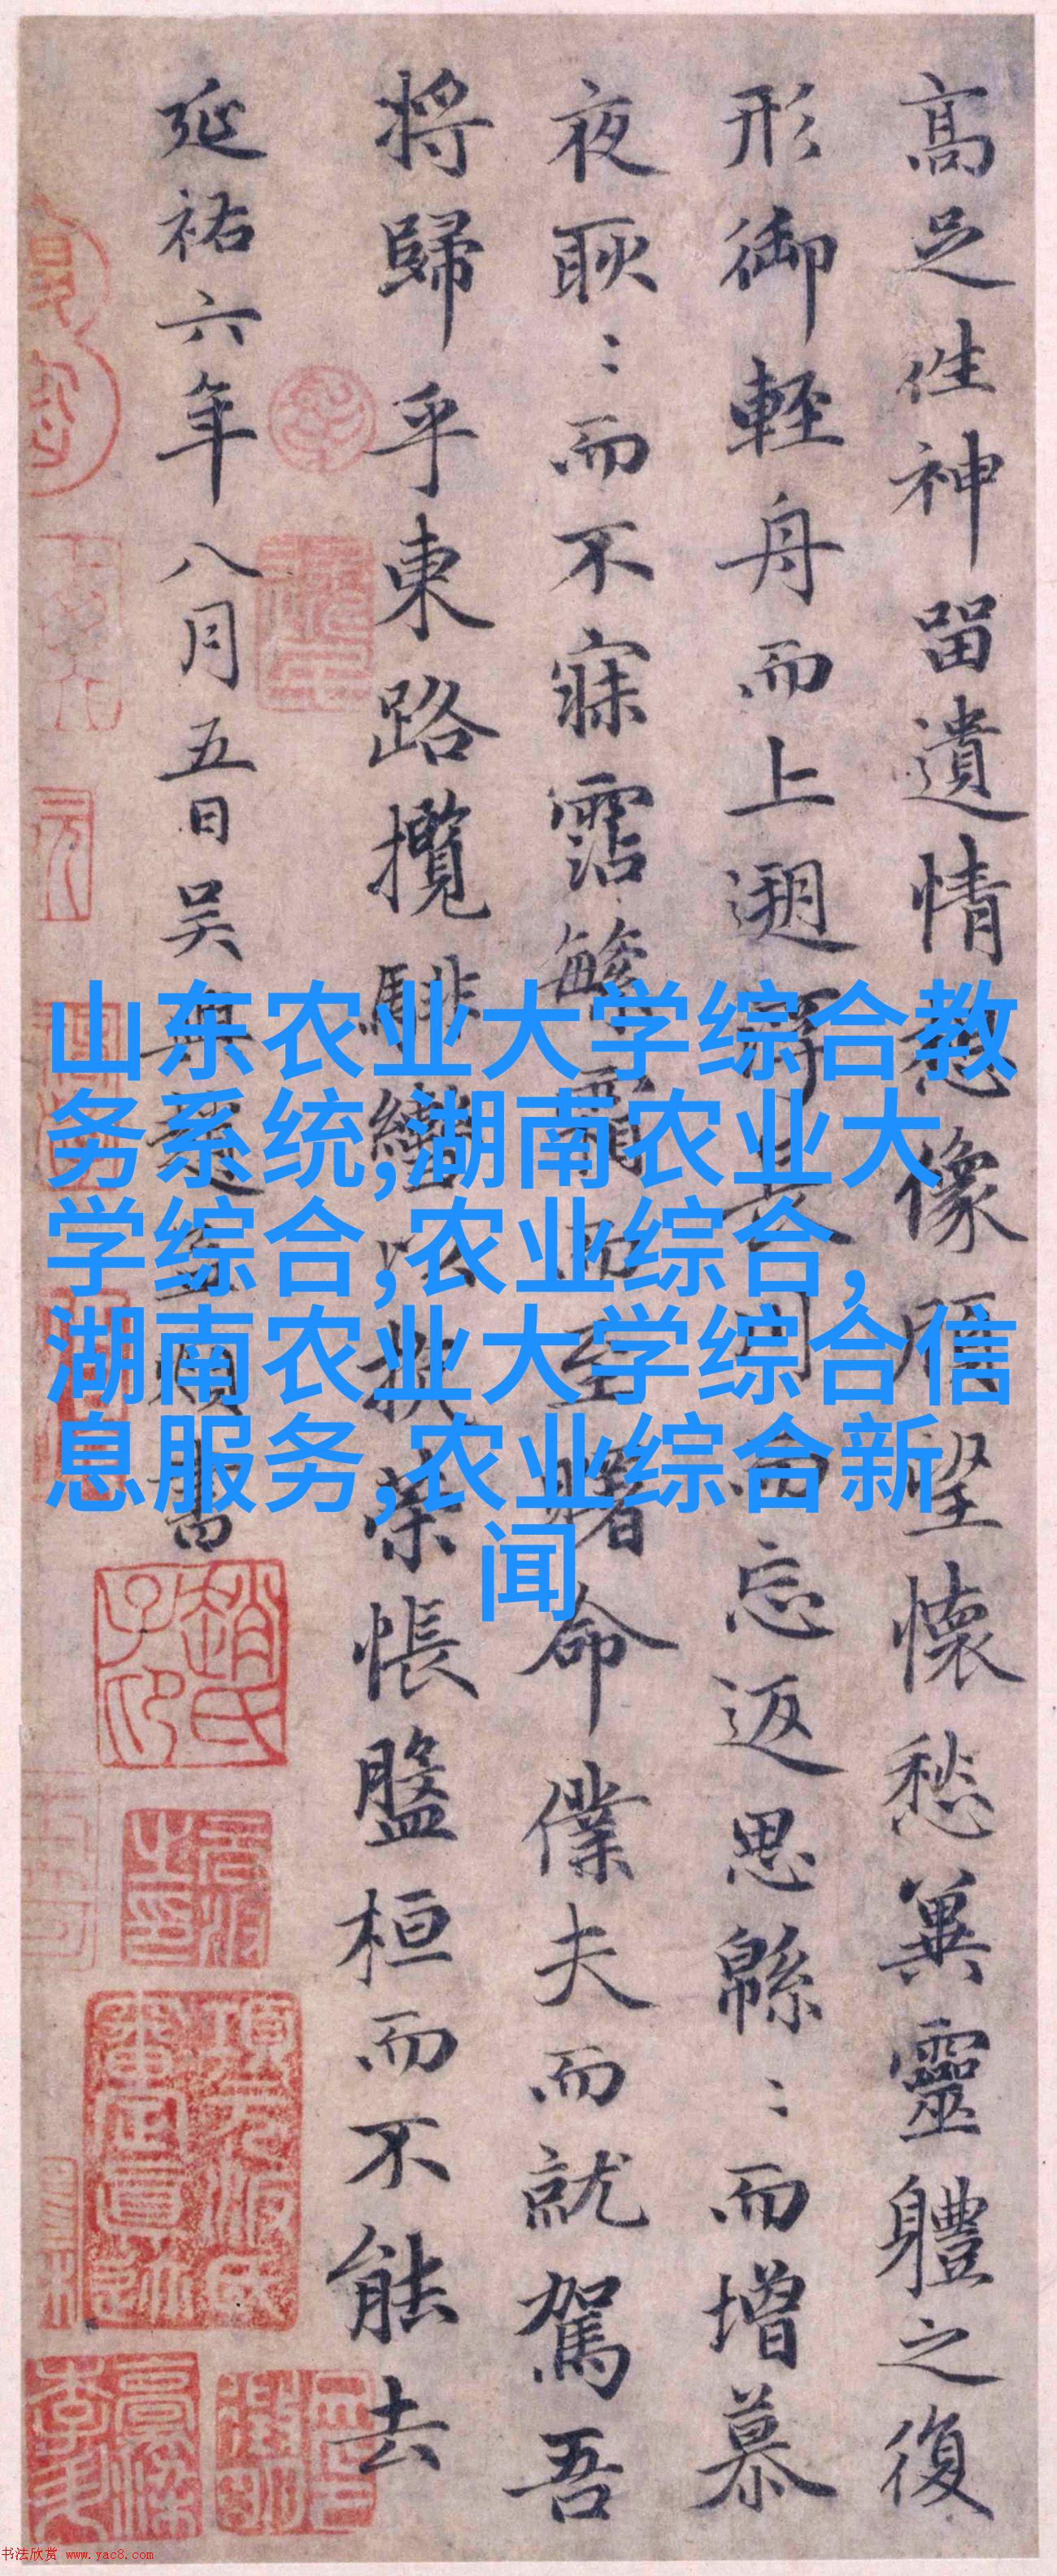 高足往神留遺情想像顧望懷愁冀靈體之復
形御輕舟而上遡浮長川而忘返思綿〻而增慕
夜耿〻而不寐霑繁霜而至曙命僕夫而就駕吾
將歸乎東路攬騑轡以抗策悵盤桓而不能去
延祐六年八月五日吳興趙孟頫書
山东农业大学综合教
务系统,湖南农业大
学综合,农业综合,
湖南农业大学综合信
息服务,农业综合新
闻
趙氏子昂
书法欣赏 www.yac8.com